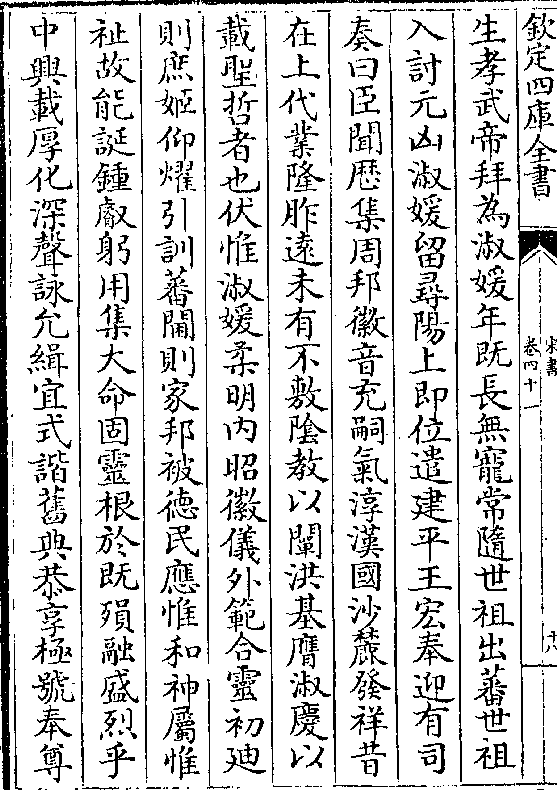 欽定四庫全書
宋書
卷四十一
十八
生孝武帝拜為淑媛年既長無寵常隨世祖出蕃世祖
入討元凶淑媛留尋陽上即位遣建平王宏奉迎有司
奏曰臣聞歴集周邦徽音充嗣氣淳漢國沙麓發祥昔
在上代業隆胙遠未有不敷陰教以闡洪基膺淑慶以
載聖哲者也伏惟淑媛柔明内昭徽儀外範合靈初廸
則庶姬仰耀引訓蕃閫則家邦被徳民應惟和神屬惟
祉故能誕鍾叡躬用集大命固靈根於既殞融盛烈乎
中興載厚化深聲詠允緝宜式諧舊典恭享極號奉尊